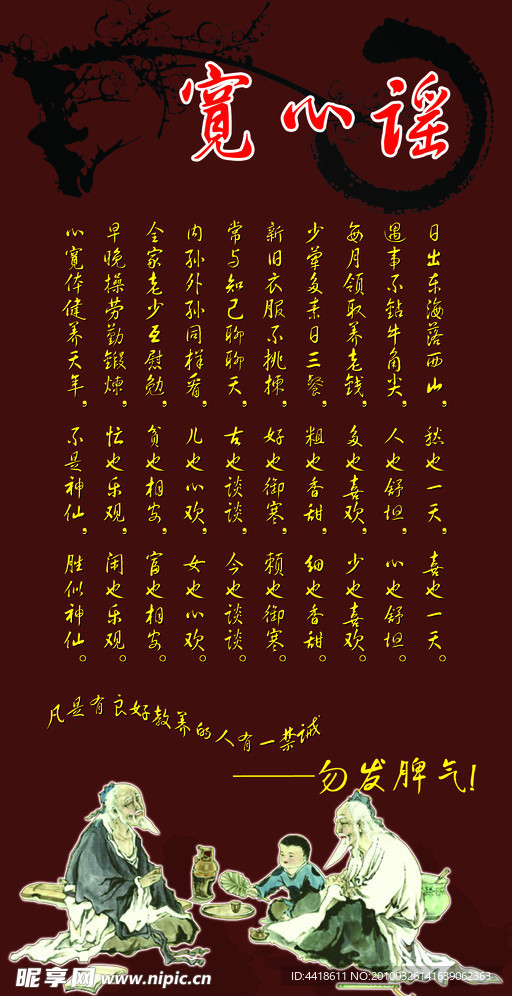 寬心谣
日出东海落西山，愁也一天，喜也一天。
遇事不钻牛角尖，人也舒坦，心也舒坦。
每月领取养老钱，多也喜欢，少也喜欢。
少荤多素日三餐，粗也香甜，细也香甜。
新旧衣服不挑拣，好也御寒，赖也御寒。
常与知己聊聊天，古也谈谈，今也谈谈。
内孙外孙同样看，儿也心欢，女也心欢。
全家老少互慰勉，贫也相安，富也相安。
早晚操劳勤锻煉，忙也乐观，闲也乐观。
心寬体健养天年，不是神仙，胜似神仙。
凡是有良好教养的人有一禁诫
——勿发脾气!
昵享网 www.nipic.cn
ID:4418611 NO:20100326141639062363